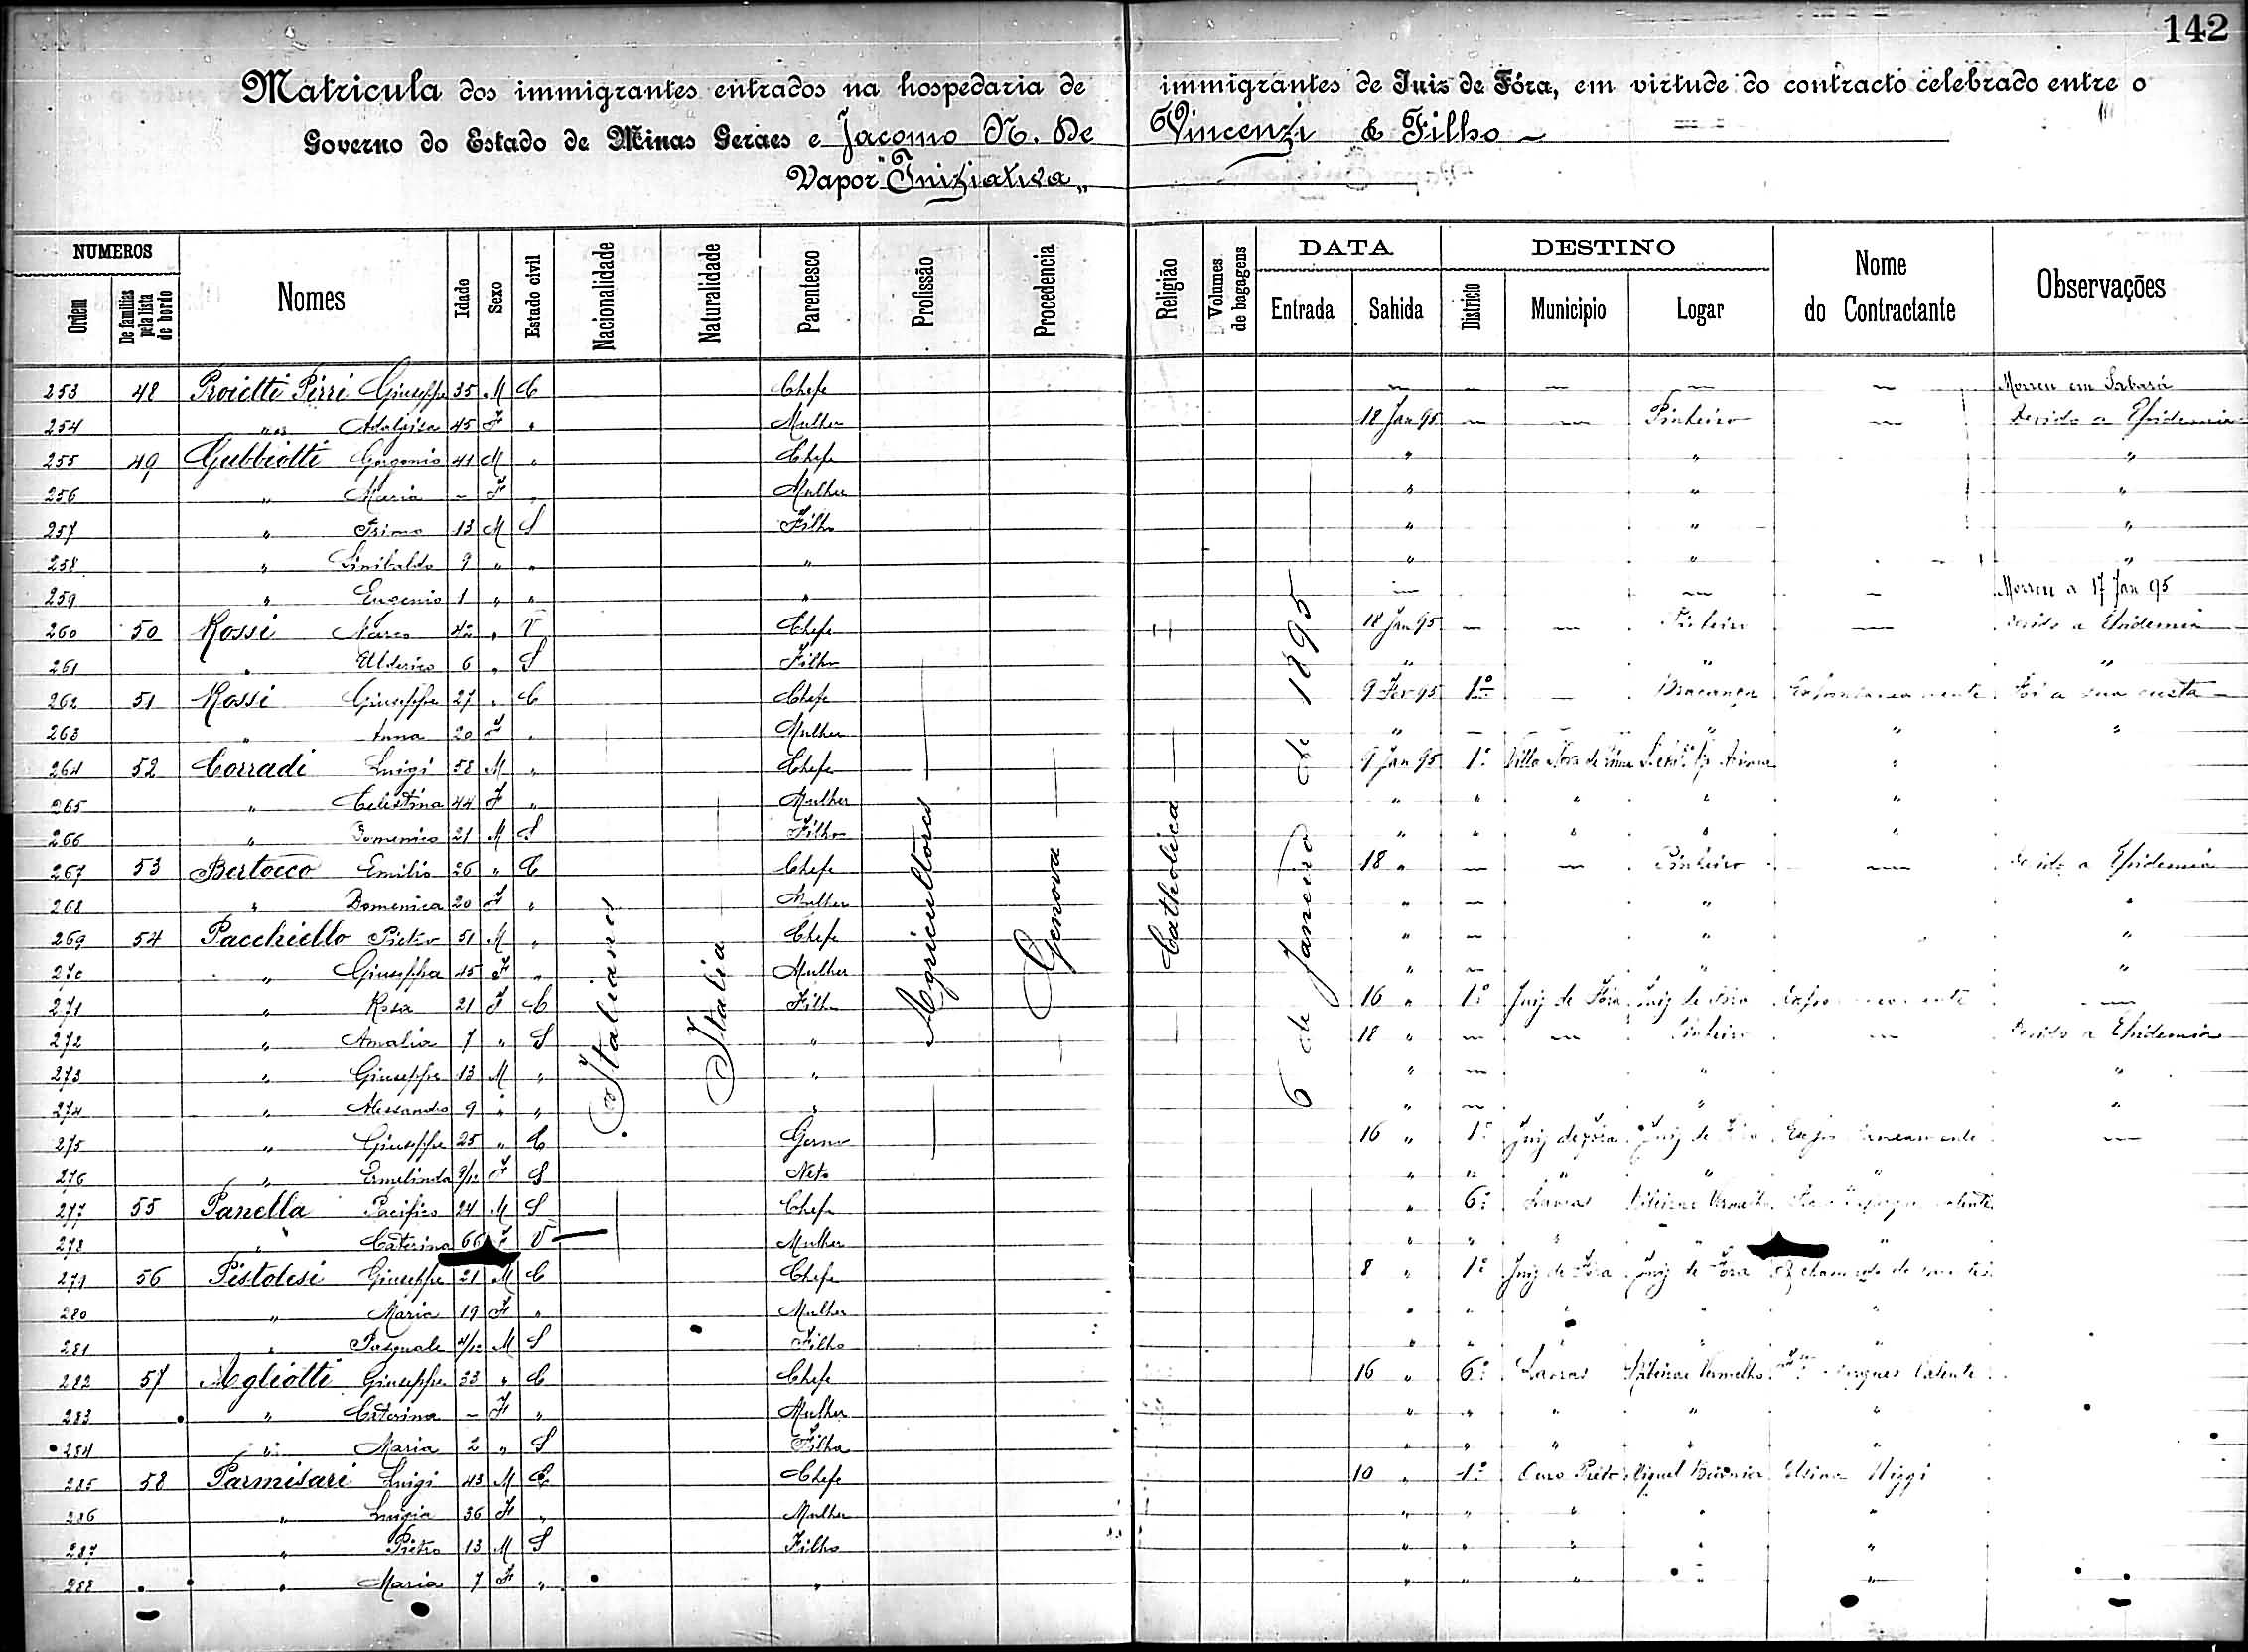 142
Matricula dos immigrantes entrados na hospedaria de immigrantes de Juiz de Fóra, em virtude do contracto celebrado entre o
Governo do Estado de Minas Geraes e Jacomo N. De Vincenzi & Filho
Vapor "Iniziativa"
NUMEROS DATA DESTINO
Ordem De familias pela lista de bordo Nomes Idade Sexo Estado civil Nacionalidade Naturalidade Parentesco Profissão Procedencia Religião Volumes de bagagens Entrada Sahida Districto Municipio Logar Nome do Contractante Observações
Italianos Italia Agricultores Genova Catholica 6 de Janeiro de 1895
253 48 Proietti Pirri Giuseppe 35 M C Chefe — — — — — Morreu em Sabará
254 " " 45 F " Mulher 18 Jan 95 — — Pinheiro — Devido a Epidemia
255 49 Gubbiotti Gorgonio 41 M " Chefe " " "
256 " Maria - F " Mulher " " "
257 " Primo 13 M S Filho " " "
258 " Sinibaldo 9 " " " " " "
259 " Eugenio 1 " " " — — - Morreu a 17 Jan 95
260 50 Rossi 42 " V Chefe 18 Jan 95 — — Pinheiro — Devido a Epidemia
261 " Ulderico 6 " S Filho " " "
262 51 Rossi Giuseppe 27 " C Chefe 9 Fev 95 1º — Bracança Espontaneamente Foi a sua custa
263 " Anna 20 F " Mulher " — — " " "
264 52 Corradi Luigi 58 M " Chefe 9 Jan 95 1º Villa Nova de Lima "
265 " Celestina 44 F " Mulher " " " " "
266 " Domenico 21 M S Filho " " " " "
267 53 Bertocco Emilio 26 " C Chefe 18 " — — Pinheiro — Devido a Epidemia
268 " Domenica 20 F " Mulher " — " "
269 54 Pacchiello Pietro 51 M " Chefe " — " "
270 " Giuseppa 45 F " Mulher " — " "
271 " Rosa 21 F C Filha 16 " 1º Juiz de Fóra Juiz de Fóra Espontaneamente —
272 " Amalia 7 " S " 18 " — — Pinheiro — Devido a Epidemia
273 " Giuseppe 13 M " " " — " "
274 " Alessandro 9 " " " " — " "
275 " Giuseppe 25 " C Genro 16 " 1º Juiz de Fóra Juiz de Fóra Espontaneamente —
276 " Ermelinda 9/12 F S Neto " " " " "
277 55 Panella Pacifico 24 M S Chefe " 6º Lavras Ribeirão Vermelho
278 " Caterina 66 F V Mulher " " " " "
279 56 Pistolesi Giuseppe 21 M C Chefe 8 " 1º Juiz de Fóra Juiz de Fóra chamado de
280 " Maria 19 F " Mulher " " " " "
281 " Pasquale 4/12 M S Filho " " " " "
282 57 Agliotti Giuseppe 33 " C Chefe 16 " 6º Lavras Ribeirão Vermelho
283 " Caterina - F " Mulher " " " " "
284 " Maria 2 " S Filha " " " " "
285 58 Parmisari Luigi 43 M C Chefe 10 " 1º Ouro Preto Miguel Burnier
286 " Luigia 36 F " Mulher " " " " "
287 " Pietro 13 M S Filho " " " " "
288 " Maria 7 F " " " " " " "